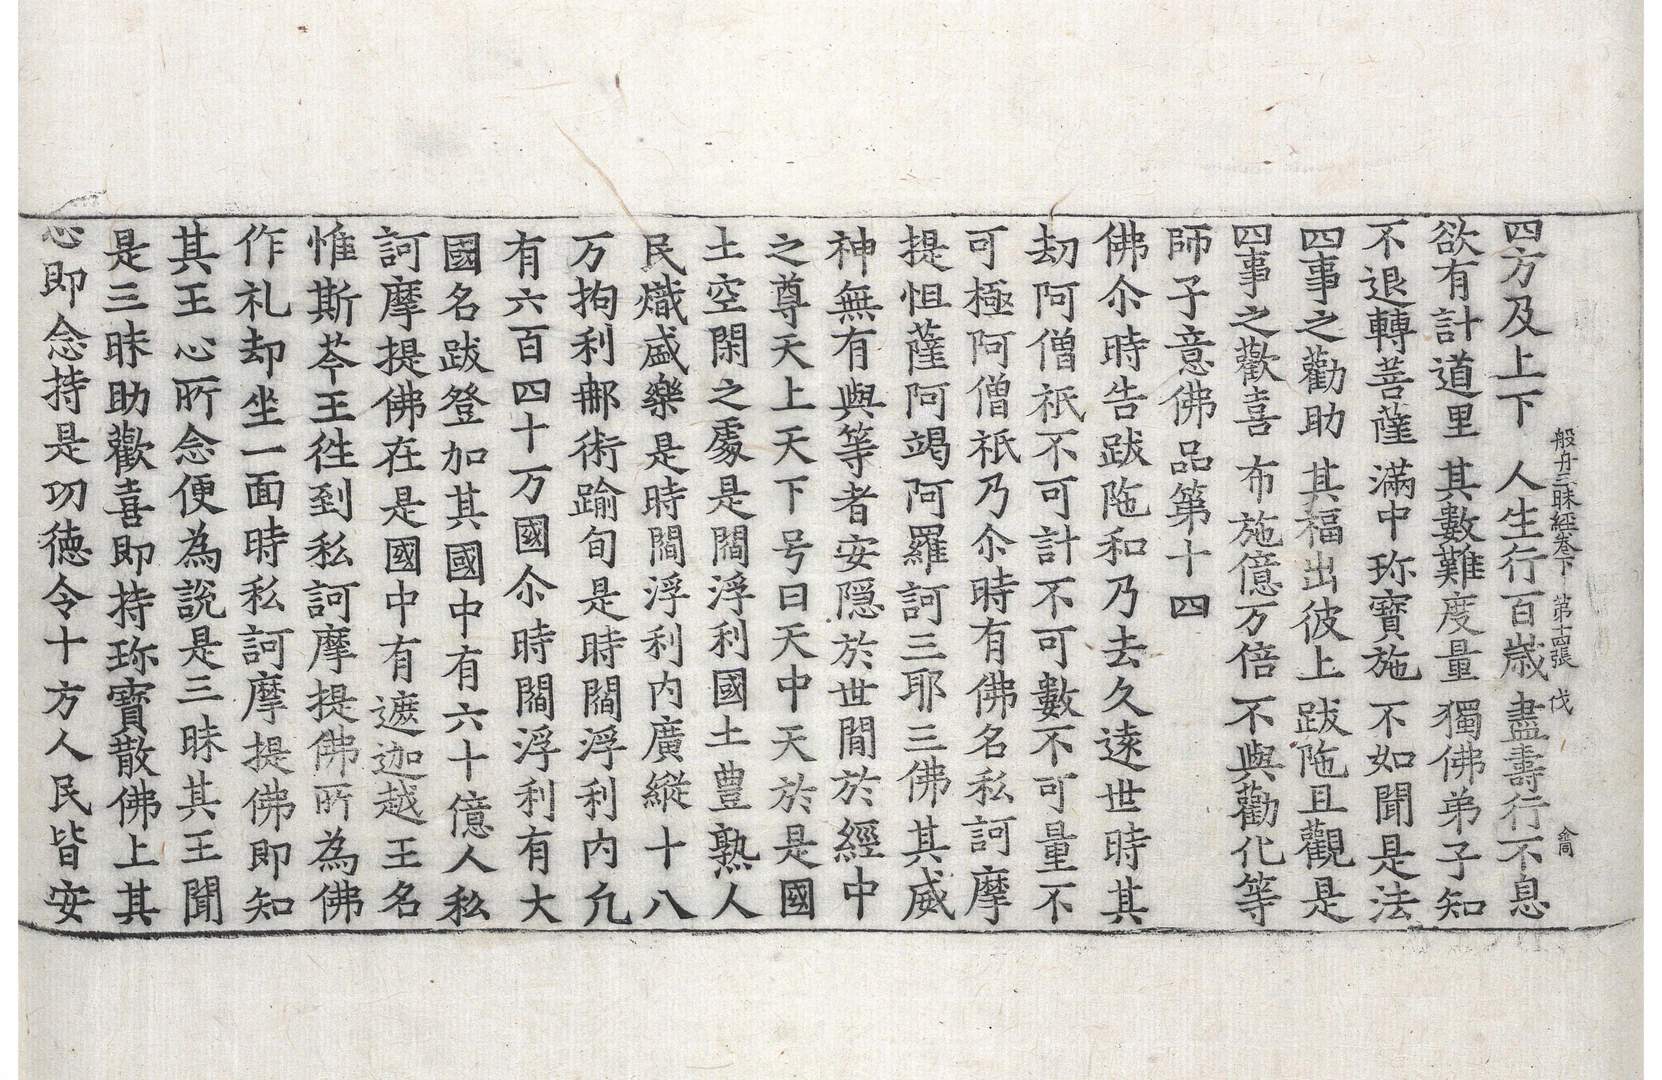 般舟三昧經卷下 第十四張 伐
四方及上下 人生行百歲 盡壽行不息
欲有計道里 其數難度量 獨佛弟子知
不退轉菩薩 滿中珎寶施 不如聞是法
四事之勸助 其福出彼上 跋陁且觀是
四事之歡喜 布施億万倍 不與勸化等
師子意佛品第十四
佛尒時告跋陁和乃去久遠世時其
劫阿僧祇不可計不可數不可量不
可極阿僧祇乃尒時有佛名私訶摩
提怛薩阿竭阿羅訶三耶三佛其威
神無有與等者安隱於世間於經中
之尊天上天下号曰天中天於是國
土空閑之處是閻浮利國土豊熟人
民熾盛樂是時閻浮利內廣縱十八
万拘利那術踰旬是時閻浮利內凢
有六百四十万國尒時閻浮利有大
國名跋登加其國中有六十億人私
訶摩提佛在是國中有遮迦越王名
惟斯芩王徃到私訶摩提佛所為佛
作礼却坐一面時私訶摩提佛即知
其王心所念便為說是三昧其王聞
是三昧助歡喜即持珎寶散佛上其
心即念持是功德令十方人民皆安